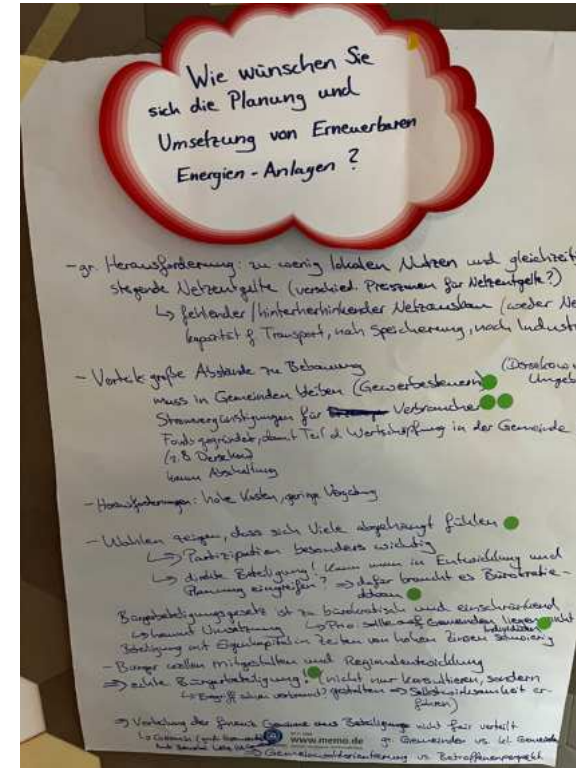 Wie wünschen Sie
sich die Planung und
Umsetzung von Erneuerbaren
Energien-Anlagen?
- gr. Herausforderung: zu wenig lokalen Nutzen und gleichzeiti
stegende Netzentgelte (verschied. Preiszonen für Netzentgelte?)
↳ fehlender/hinterherhinkender Netzausbau (weder Ne
kapazität f Transport, noch Speicherung, noch Industri
- Vorteil: große Abstände zu Bebauung (Dersekow
muss in Gemeinden bleiben (Gewerbesteuern) Umgeb
Stromvergünstigungen für Verbraucher
Fonds gegründet, damit Teil d. Wertschöpfung in der Gemeinde
(z.B. Dersekow)
kaum Abschaltung
- Herausforderungen: hohe Kosten, geringe Vergütung
- Wahlen zeigen, dass sich Viele abgehängt fühlen
↳ Partizipation besonders wichtig
↳ direkte Beteiligung! Kann man in Entwicklung und
Planung eingreifen? ⇒ dafür braucht es Bürokratie-
abbau
Bürgerbeteiligungsgesetz ist zu bürokratisch und einschränkend
↳ hemmt Umsetzung ↳ Prio: sollte auf Gemeinden liegen nicht
Individuen
Beteiligung mit Eigenkapital in Zeiten von hohen Zinsen schwierig
- Bürger wollen mitgestalten und Regionalentwicklung
⇒ echte Bürgerbeteiligung! (nicht nur konsultieren, sondern
↳ Begriff schon verbrannt? gestalten ⇒ Selbstwirksamkeit er-
fahren)
⇒ Verteilung der finanz. Gewinne aus Beteiligung nicht fair verteilt
www.memo.de gr. Gemeinden vs. kl. Gemeind
⇒ Gemeinwohlorientierung vs. Betroffenenperspekt